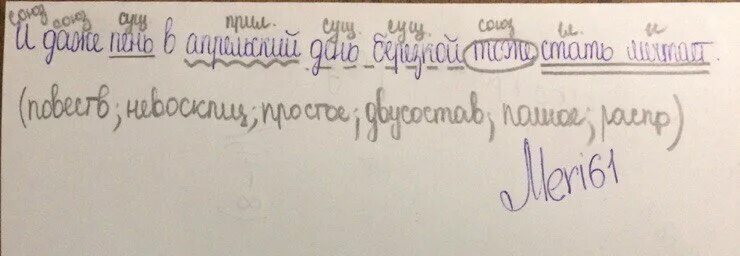 союз союз сущ прил. сущ. сущ. союз гл. гл
И даже пень в апрельский день березкой тоже стать мечтает.
(повеств; невосклиц; простое; двусостав; полное; распр)
Meri61